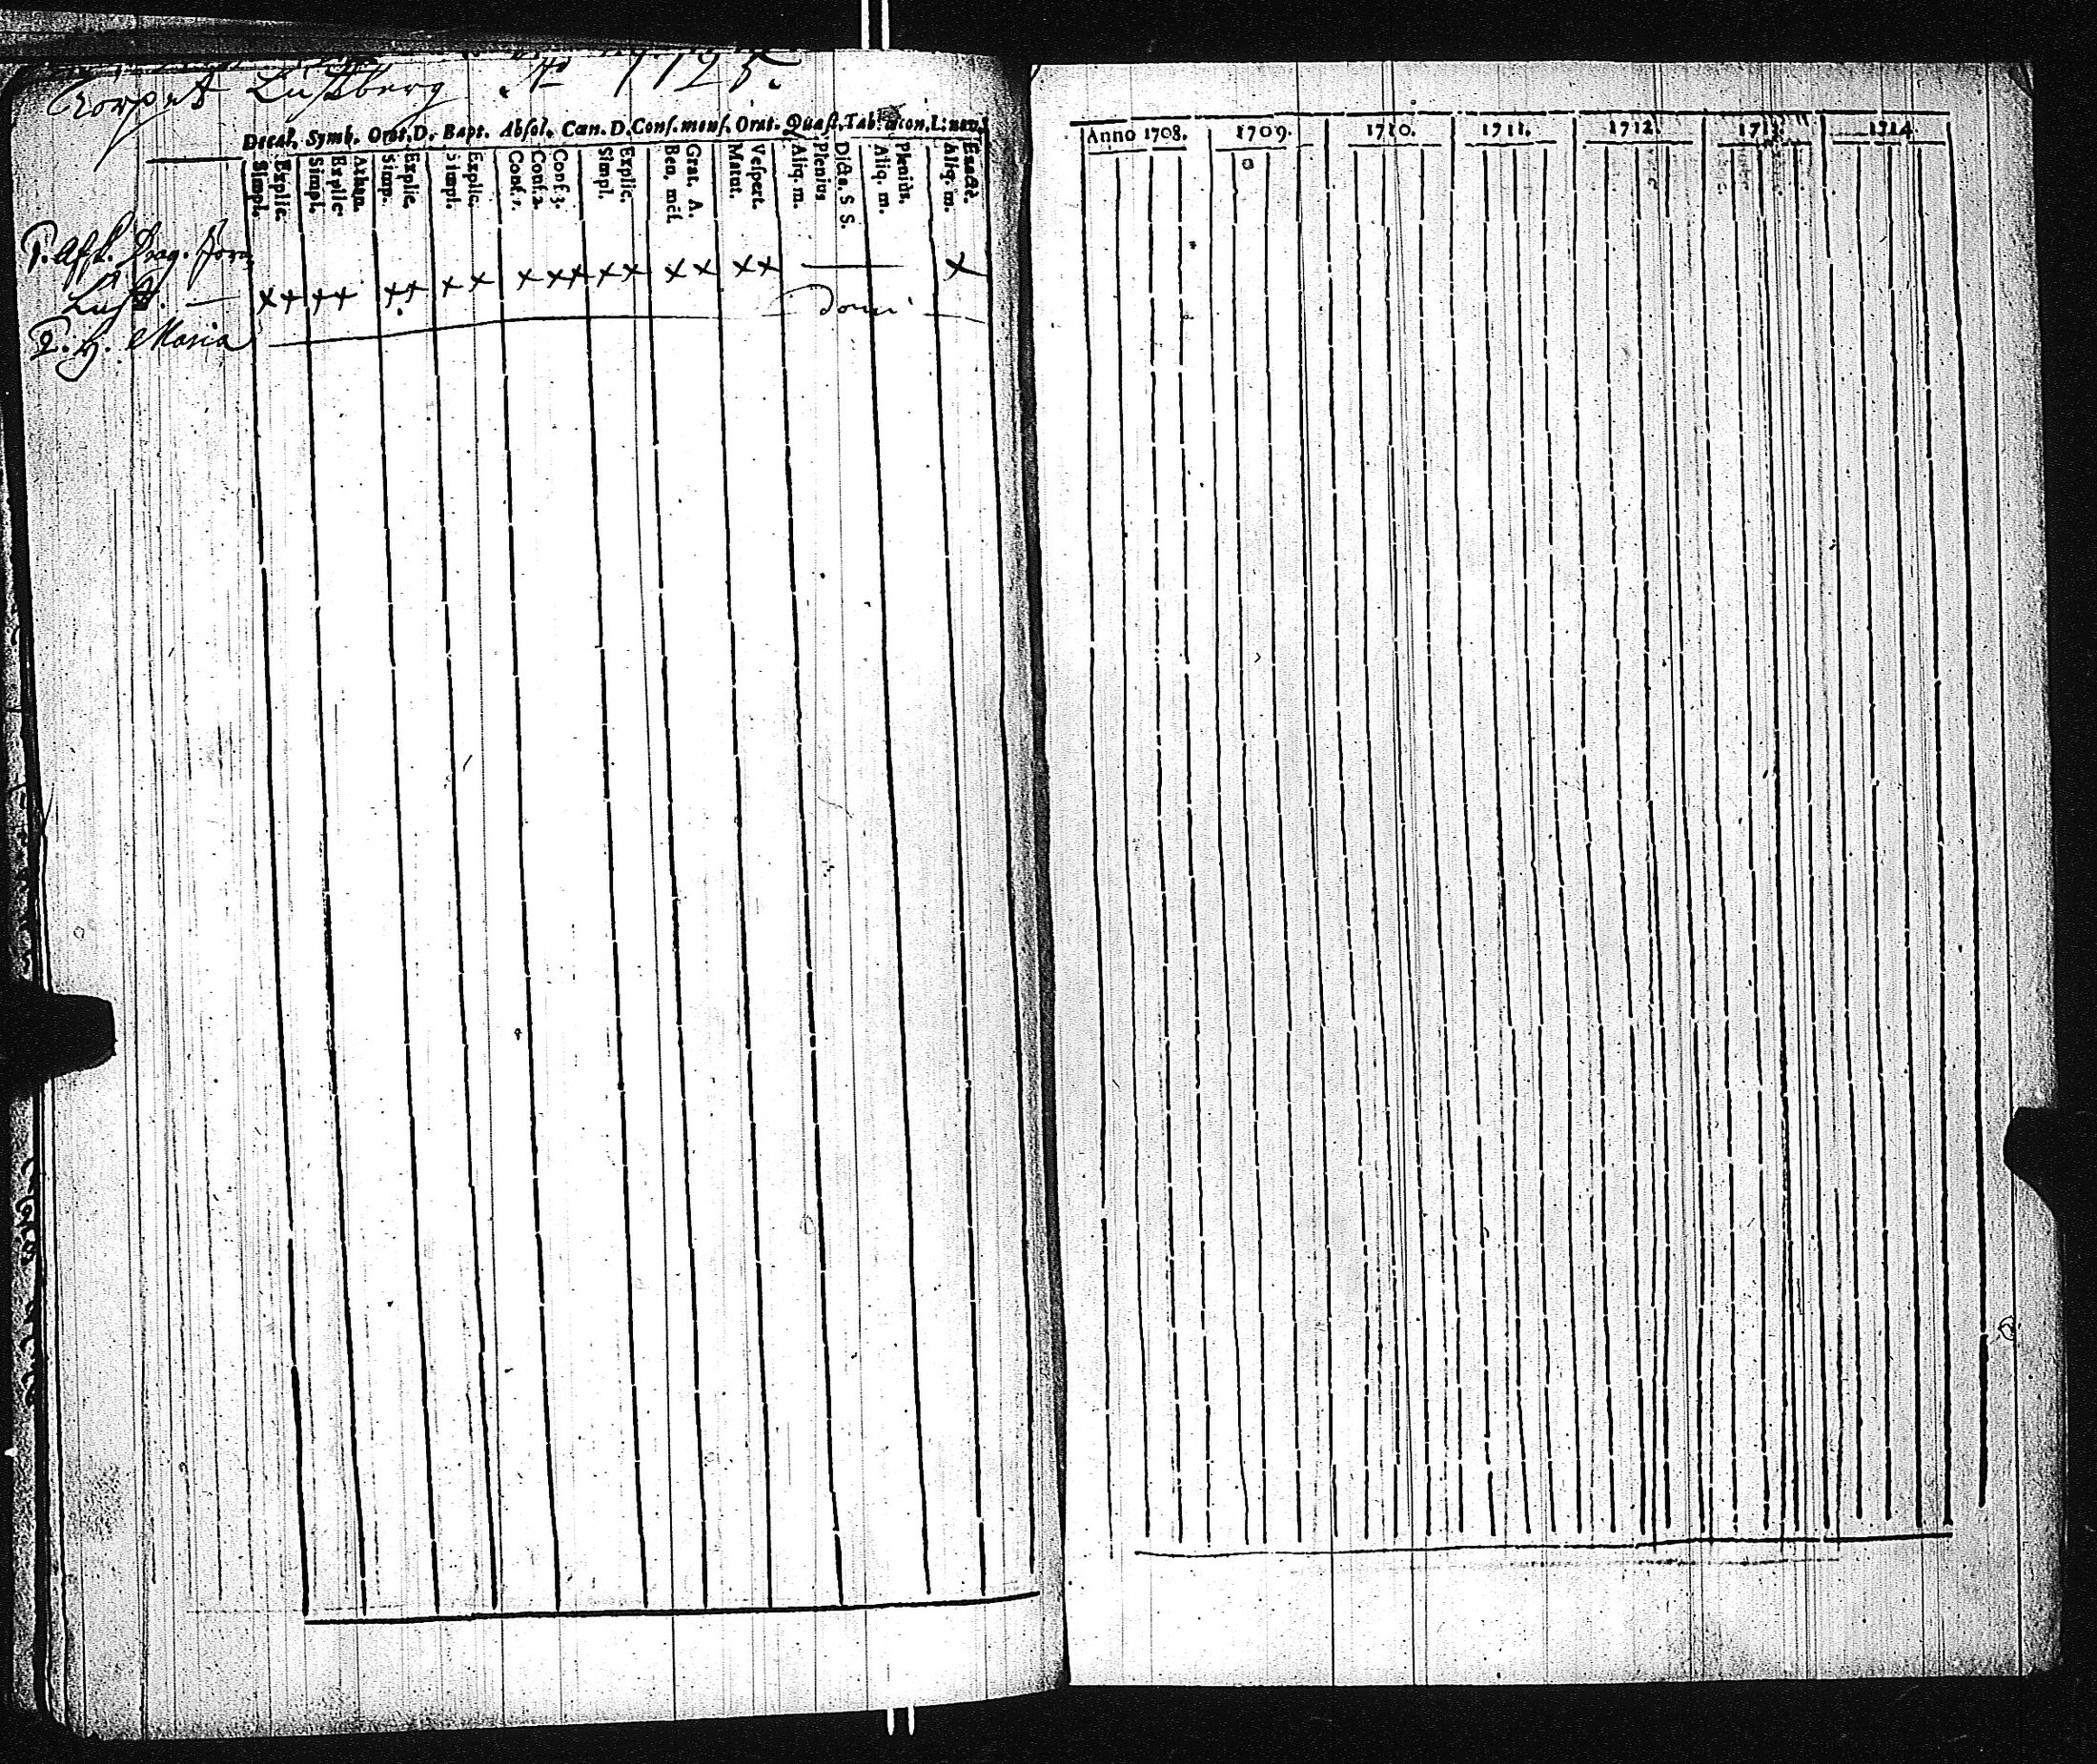 Torpet Lustberg. Ao 1725.
Decal. Symb. Orat. D. Bapt. Absol. Cœn. D. Conf. mens. Orat. Quæst. Tab. œcon. L: nav.
Simpl. Explic. Simpl. Explic Athan. Simp. Explic. Simpl. Explic. Conf. 1. Conf. 2. Conf. 3. Simpl. Explic. Ben. mēſ. Grat. A. Matut. Vespert. Aliq. m. Plenius Dicta. S S. Aliq. m. Plenius. Aliq. m. Exactè.
T. Afsk. Drag.
Lust. — x x x x x x x x x x x x x x x x x — x
2. H. Maria — domi —
Anno 1708. 1709. 1710. 1711. 1712. 1713. 1714.